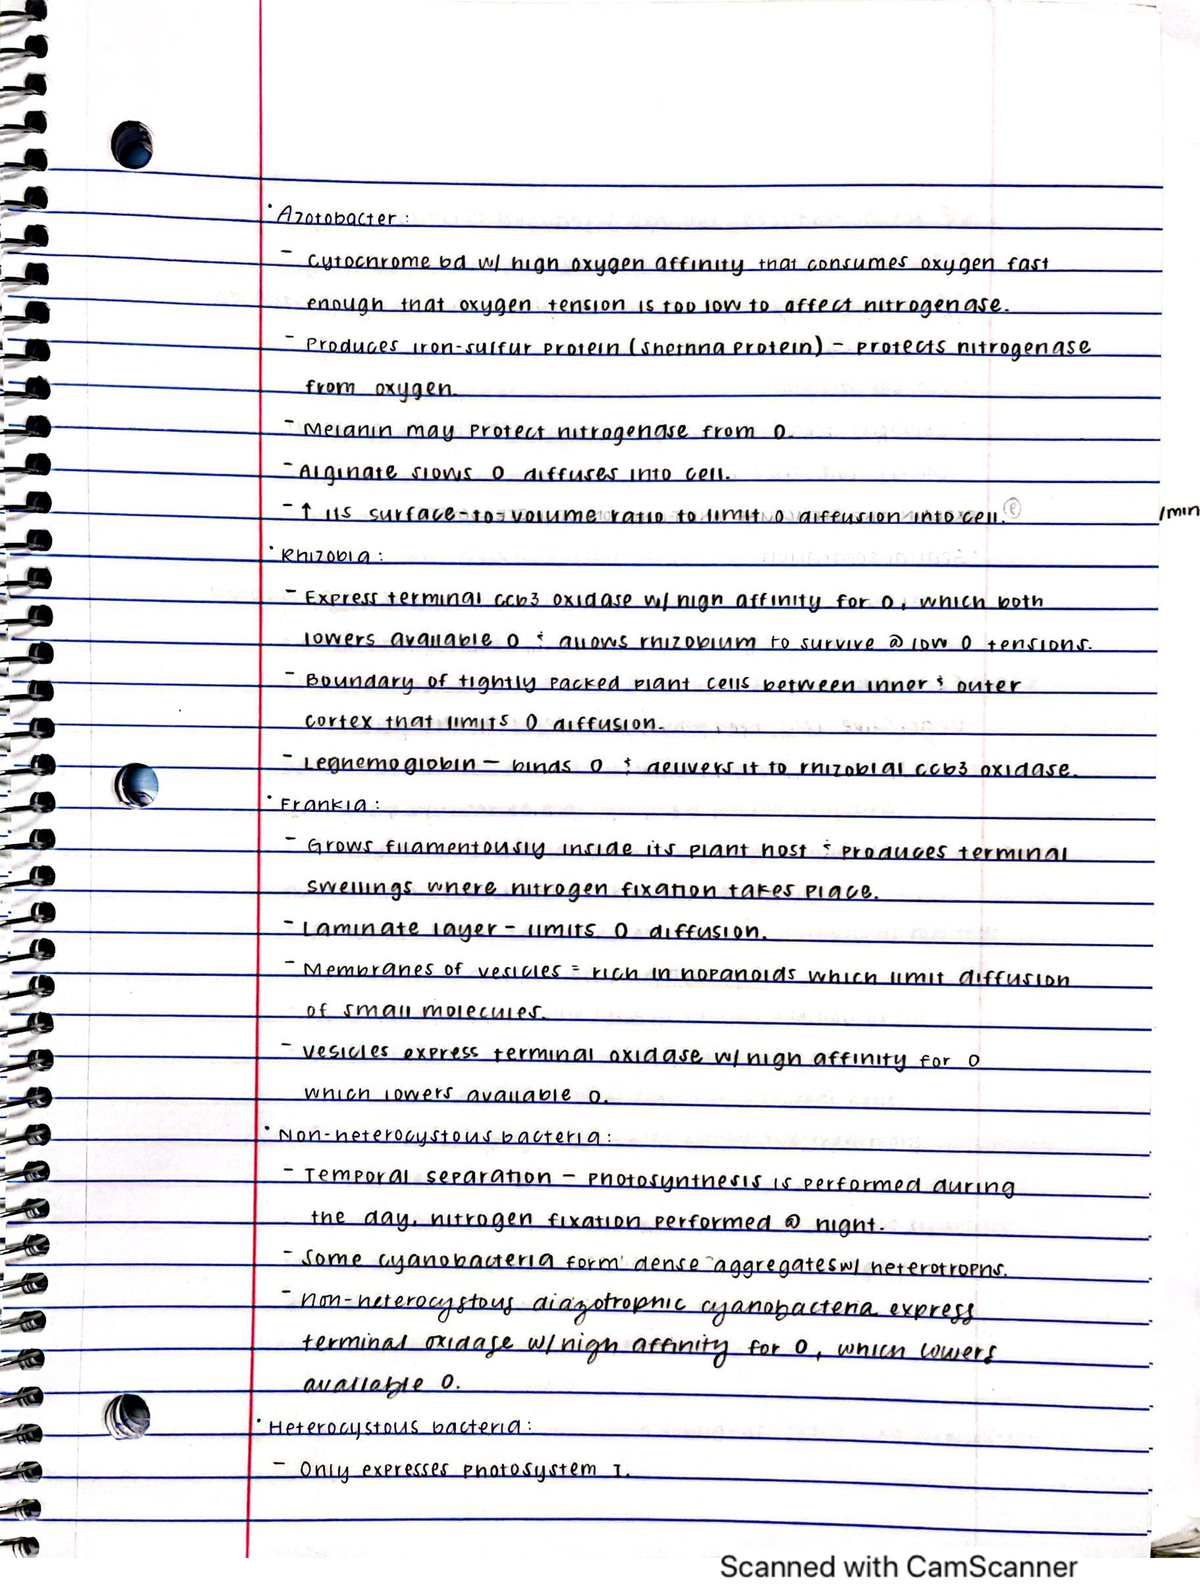 · Azotobacter:
- cytochrome bd w/ high oxygen affinity that consumes oxygen fast
enough that oxygen tension is too low to affect nitrogenase.
- Produces iron-sulfur protein (shethna protein) - protects nitrogenase
from oxygen.
- Melanin may protect nitrogenase from O.
- Alginate slows O diffuses into cell.
- ↑ its surface-to-volume ratio to limit O diffusion into cell.
/min
· Rhizobia:
- Express terminal ccb3 oxidase w/ high affinity for O, which both
lowers available O & allows rhizobium to survive @ low O tensions.
- Boundary of tightly packed plant cells between inner & outer
cortex that limits O diffusion.
- Leghemoglobin - binds O & delivers it to rhizobial ccb3 oxidase.
· Frankia:
- Grows filamentously inside its plant host & produces terminal
swellings where nitrogen fixation takes place.
- Laminate layer - limits O diffusion.
- Membranes of vesicles = rich in hopanoids which limit diffusion
of small molecules.
- vesicles express terminal oxidase w/ high affinity for O
which lowers available O.
· Non-heterocystous bacteria:
- Temporal separation - photosynthesis is performed during
the day, nitrogen fixation performed @ night.
- Some cyanobacteria form dense aggregates w/ heterotrophs.
- non-heterocystous diazotrophic cyanobacteria express
terminal oxidase w/ high affinity for O, which lowers
available O.
· Heterocystous bacteria:
- Only expresses photosystem I.
Scanned with CamScanner